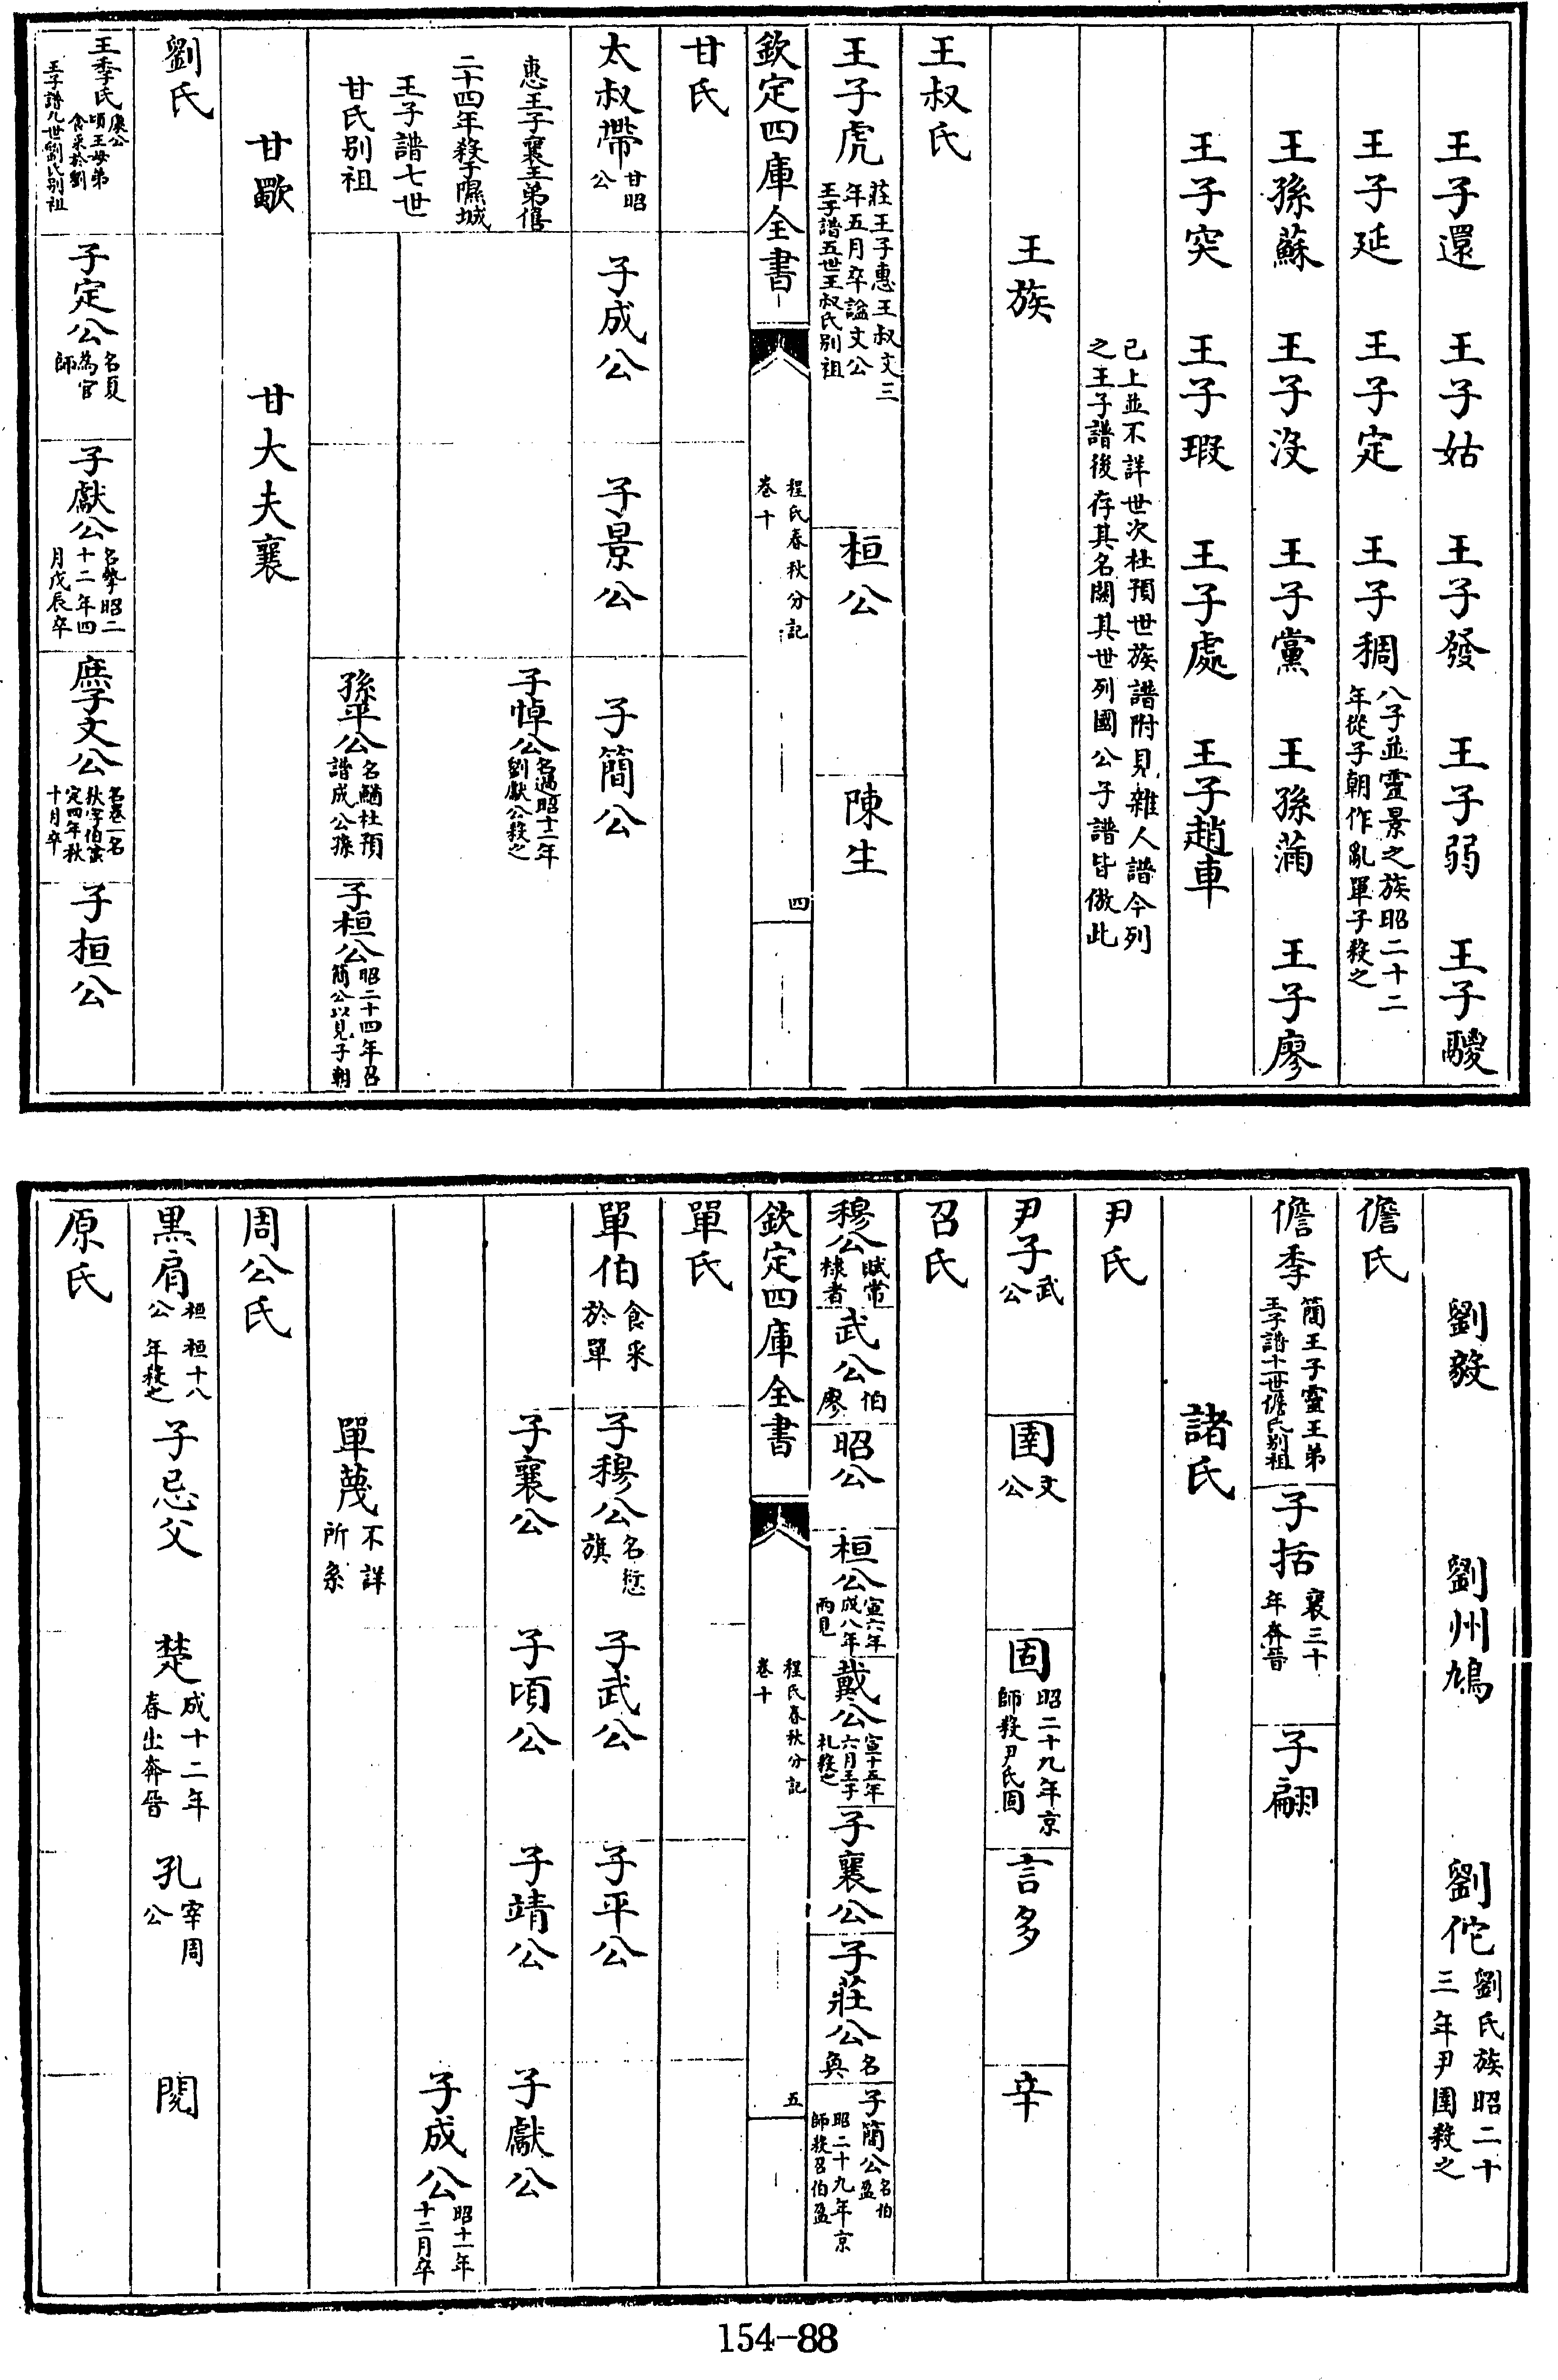 王子還 王子姑 王子發 王子弱 王子鬷
王子延 王子定 王子稠 八子並靈景之族昭二十二年從子朝作亂單子殺之
王孫蘇 王子沒 王子黨 王孫滿 王子廖
王子突 王子瑕 王子處 王子趙車
已上並不詳世次杜預世族譜附見雜人譜今列之王子譜後存其名闕其世列國公子譜皆倣此
王族
王叔氏
王子虎 莊王子惠王叔文三年五月卒諡文公王子譜五世王叔氏別祖 桓公 陳生
欽定四庫全書
程氏春秋分記
卷十
四
甘氏
太叔帶 甘昭公 子成公 子景公 子簡公
惠王子襄王弟僖 子悼公 名過昭十二年劉獻公殺之
二十四年殺于隰城
王子譜七世
甘氏別祖 孫平公 名鰌杜預譜成公孫 子桓公 昭二十四年召簡公以見子朝
甘歜 甘大夫襄
劉氏
王季氏 康公頃王母弟食采於劉王子譜九世劉氏別祖 子定公 名夏為官師 子獻公 名摯昭二十二年四月戊辰卒 庶子文公 名卷一名狄字伯蚠定四年秋十月卒 子桓公
劉毅 劉州鳩 劉佗 劉氏族昭二十三年尹圉殺之
儋氏
儋季 簡王子靈王弟王子譜十一世儋氏別祖 子括 襄三十年奔晉 子翩
諸氏
尹氏
尹子 武公 圉 文公 固 昭二十九年京師殺尹氏固 言多 辛
召氏
穆公 賦常棣者 武公 伯廖 昭公 桓公 宣六年成八年兩見 戴公 宣十五年六月王子札殺之 子襄公 子莊公 名奐 子簡公 名伯盈昭二十九年京師殺召伯盈
欽定四庫全書
程氏春秋分記
卷十
五
單氏
單伯 食采於單 子穆公 名愆旗 子武公 子平公
子襄公 子頃公 子靖公 子獻公
子成公 昭十一年十二月卒
單蔑 不詳所系
周公氏
黑肩 桓公 桓十八年殺之 子忌父 楚 成十二年春出奔晉 孔 宰周公 閱
原氏
154-88